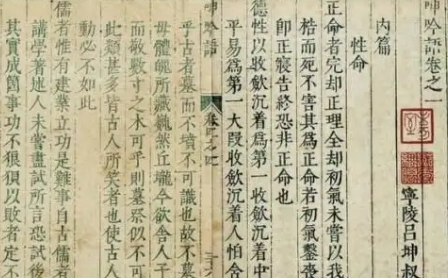 呻吟語卷之一
內篇
寧陵呂坤叔
性命
正命者完却正理全却初氣未嘗以我
桎而死不害其爲正命若初氣鑿喪
卽正寢告終恐非正命也
德性以收斂沉着爲第一收斂沉着
平易爲第一大段收斂沉着人怕含
呻吟語
乎古者墓而不墳不可識也故不墓
母體魄所藏巍然丘壠今欲舍人子
而敬數寸之木可乎則墓祭似不可
此類甚多皆古人所笑者也使古人
動必不如此
儒者惟有建業立功是難事自古儒者
講學著述人未嘗盡試所言恐試後
其實成箇事功不狼狽以敗者定不